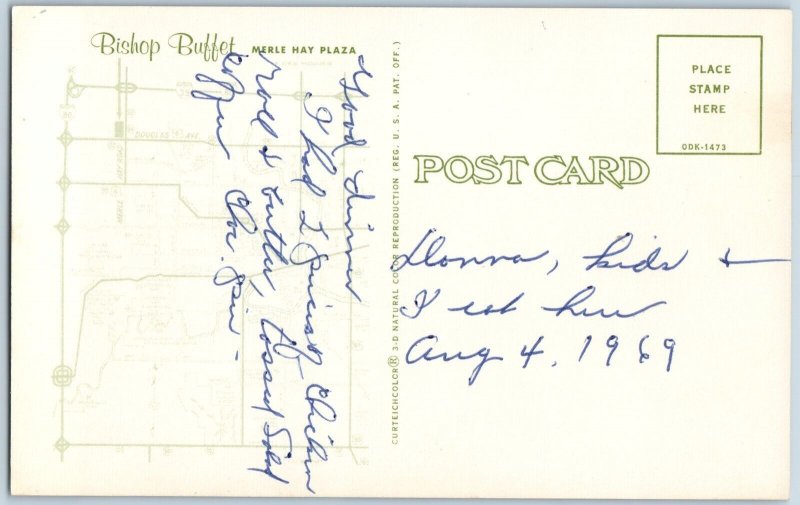 Bishop Buffet MERLE HAY PLAZA
Good dinner
I had 2 pieces chicken
roll & butter, tossed salad
coffee Choc. pie -
DOUGLAS AVE.
MERLE HAY ROAD
CURTEICHCOLOR® 3-D NATURAL COLOR REPRODUCTION (REG. U. S. A. PAT. OFF.)
PLACE
STAMP
HERE
ODK-1473
POST CARD
Donna, kids +
I eat here
Aug 4, 1969